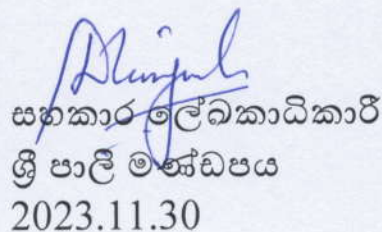 සහකාර ලේඛකාධිකාරී
ශ්‍රී පාලි මණ්ඩපය
2023.11.30